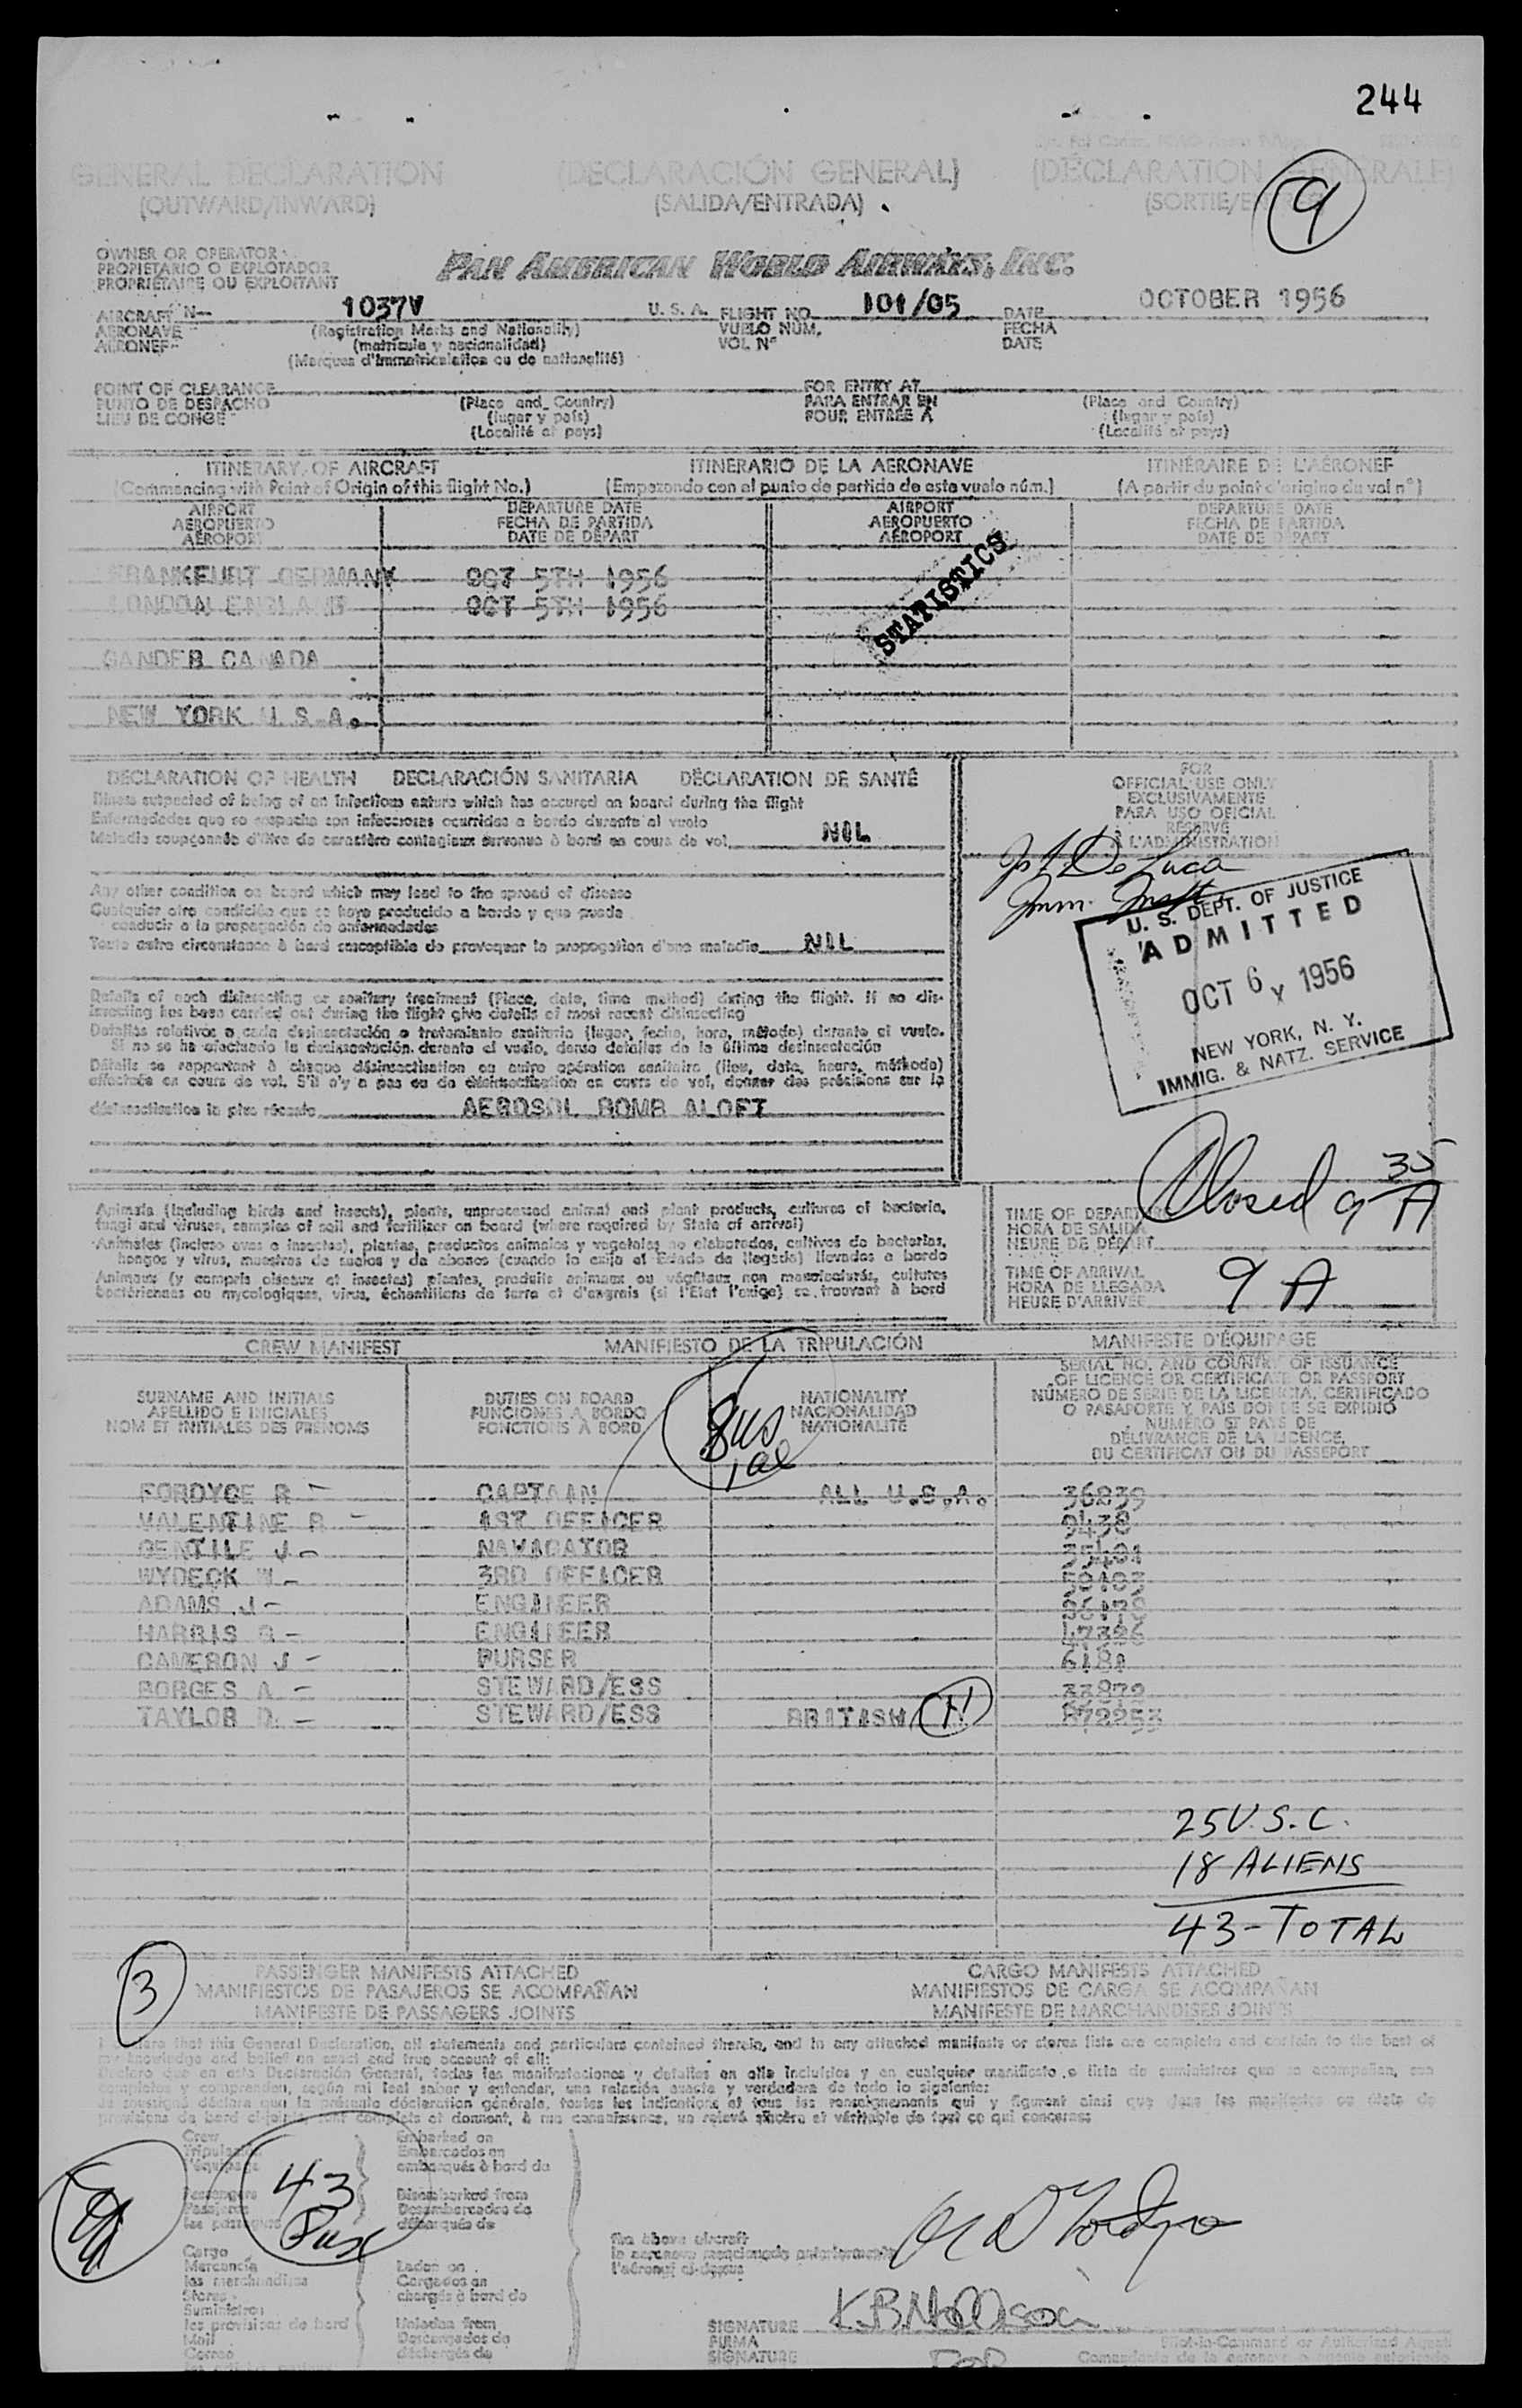 244
GENERAL DECLARATION (DECLARACIÓN GENERAL) (DÉCLARATION GÉNÉRALE)
(OUTWARD/INWARD) (SALIDA/ENTRADA) (SORTIE/
9
OWNER OR OPERATOR
PROPIETARIO O EXPLOTADOR
PROPRIÉTAIRE OU EXPLOITANT
PAN AMERICAN WORLD AIRWAYS, INC.
AIRCRAFT N— 1037V U. S. A. FLIGHT NO. 101/05 DATE OCTOBER 1956
AERONAVE (Registration Marks and Nationality) VUELO NÚM. FECHA
AÉRONEF (matrícula y nacionalidad) VOL Nº DATE
(Marques d'immatriculation ou de nationalité)
POINT OF CLEARANCE FOR ENTRY AT
PUNTO DE DESPACHO (Place and Country) PARA ENTRAR EN (Place and Country)
LIEU DE CONGÉ (lugar y país) POUR ENTRÉE À (lugar y país)
(Localité et pays) (Localité et pays)
ITINERARY OF AIRCRAFT ITINERARIO DE LA AERONAVE ITINÉRAIRE DE L'AÉRONEF
(Commencing with Point of Origin of this flight No.) (Empezando con el punto de partida de este vuelo núm.) (A partir du point d'origine du vol nº)
AIRPORT DEPARTURE DATE AIRPORT DEPARTURE DATE
AEROPUERTO FECHA DE PARTIDA AEROPUERTO FECHA DE PARTIDA
AÉROPORT DATE DE DÉPART AÉROPORT DATE DE DÉPART
FRANKFURT GERMANY OCT 5TH 1956
LONDON ENGLAND OCT 5TH 1956
STATISTICS
GANDER CANADA
NEW YORK U.S.A.
DECLARATION OF HEALTH DECLARACIÓN SANITARIA DÉCLARATION DE SANTÉ
Illness suspected of being of an infectious nature which has occured on board during the flight
Enfermedades que se sospecha son infecciosas ocurridas a bordo durante el vuelo
Maladie soupçonnée d'être de caractère contagieux survenue à bord en cours de vol NIL
Any other condition on board which may lead to the spread of disease
Cualquier otra condición que se haya producido a bordo y que pueda
conducir a la propagación de enfermedades
Toute autre circonstance à bord susceptible de provoquer la propagation d'une maladie NIL
Details of each disinsecting or sanitary treatment (Place, date, time method) during the flight. If no dis-
insecting has been carried out during the flight give details of most recent disinsecting
Detalles relativos a cada desinsectación o tratamiento sanitario (lugar, fecha, hora, método) durante el vuelo.
Si no se ha efectuado la desinsectación durante el vuelo, dense detalles de la última desinsectación
Détails se rapportant à chaque désinsectisation ou autre opération sanitaire (lieu, date, heure, méthode)
effectuée en cours de vol. S'il n'y a pas eu de désinsectisation en cours de vol, donner des précisions sur la
désinsectisation la plus récente AEROSOL BOMB ALOFT
FOR
OFFICIAL USE ONLY
EXCLUSIVAMENTE
PARA USO OFICIAL
RÉSERVÉ
À L'ADMINISTRATION
De Luca
Imm.
U. S. DEPT. OF JUSTICE
ADMITTED
OCT 6 1956
NEW YORK, N. Y.
IMMIG. & NATZ. SERVICE
Closed 9 35 A
Animals (including birds and insects), plants, unprocessed animal and plant products, cultures of bacteria,
fungi and viruses, samples of soil and fertilizer on board (where required by State of arrival)
Animales (incluso aves e insectos), plantas, productos animales y vegetales no elaborados, cultivos de bacterias,
hongos y virus, muestras de suelos y de abonos (cuando lo exija el Estado de llegada) llevados a bordo
Animaux (y compris oiseaux et insectes) plantes, produits animaux ou végétaux non manufacturés, cultures
bactériennes ou mycologiques, virus, échantillons de terre et d'engrais (si l'État l'exige) se trouvant à bord
TIME OF DEPARTURE
HORA DE SALIDA
HEURE DE DÉPART
TIME OF ARRIVAL
HORA DE LLEGADA
HEURE D'ARRIVÉE
9 A
CREW MANIFEST MANIFIESTO DE LA TRIPULACIÓN MANIFESTE D'ÉQUIPAGE
SURNAME AND INITIALS
APELLIDO E INICIALES
NOM ET INITIALES DES PRÉNOMS
DUTIES ON BOARD
FUNCIONES A BORDO
FONCTIONS À BORD
NATIONALITY
NACIONALIDAD
NATIONALITÉ
SERIAL NO. AND COUNTRY OF ISSUANCE
OF LICENCE OR CERTIFICATE OR PASSPORT
NÚMERO DE SERIE DE LA LICENCIA, CERTIFICADO
O PASAPORTE Y PAÍS DONDE SE EXPIDIÓ
NUMÉRO ET PAYS DE
DÉLIVRANCE DE LA LICENCE,
DU CERTIFICAT OU DU PASSEPORT
8 US
1 al
FORDYCE R – CAPTAIN ALL U.S.A. 36839
VALENTINE R – 1ST OFFICER 9438
GENTILE J – NAVAGATOR 35401
WYDECK W – 3RD OFFICER
ADAMS J – ENGINEER
HARRIS G – ENGINEER 47326
CAMERON J – PURSER 6181
BORGES A – STEWARD/ESS 33872
TAYLOR D. – STEWARD/ESS BRITISH 872253
25 U.S.C.
18 ALIENS
43 - TOTAL
3
PASSENGER MANIFESTS ATTACHED CARGO MANIFESTS ATTACHED
MANIFIESTOS DE PASAJEROS SE ACOMPAÑAN MANIFIESTOS DE CARGA SE ACOMPAÑAN
MANIFESTE DE PASSAGERS JOINTS MANIFESTE DE MARCHANDISES JOINTS
I declare that this General Declaration, all statements and particulars contained therein, and in any attached manifests or stores lists are complete and certain to the best of
my knowledge and belief an exact and true account of all:
Declaro que en esta Declaración General, todas las manifestaciones y detalles en ella incluidos y en cualquier manifiesto o lista de suministros que se acompañan, son
completos y comprenden, según mi leal saber y entender, una relación exacta y verdadera de todo lo siguiente:
Je soussigné déclare que la présente déclaration générale, toutes les indications et tous les renseignements qui y figurent ainsi que dans les manifestes ou états de
provisions de bord ci-joints sont complets et donnent, à ma connaissance, un relevé sincère et véritable de tout ce qui concerne:
Crew
Tripulación
l'équipage
Passengers
Pasajeros
les passagers
43
Pax
Cargo
Mercancía
les marchandises
Stores
Suministros
les provisions de bord
Mail
Correo
Embarked on
Embarcados en
embarqués à bord de
Disembarked from
Desembarcados de
débarqués de
Laden on
Cargados en
chargés à bord de
Unladen from
Descargados de
déchargés de
the above aircraft
la aeronave mencionada anteriormente
l'aéronef ci-dessus
SIGNATURE
FIRMA
SIGNATURE
Pilot-in-Command or Authorized Agent
Comandante de la aeronave o agente autorizado